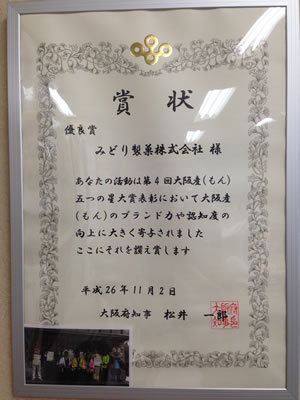 賞状
優良賞
みどり製菓株式会社 様
あなたの活動は第4回大阪産(もん)
五つの星大賞表彰において大阪産
(もん)のブランド力や認知度の
向上に大きく寄与されました
ここにそれを讃え賞します
平成26年11月2日
大阪府知事 松井 一郎